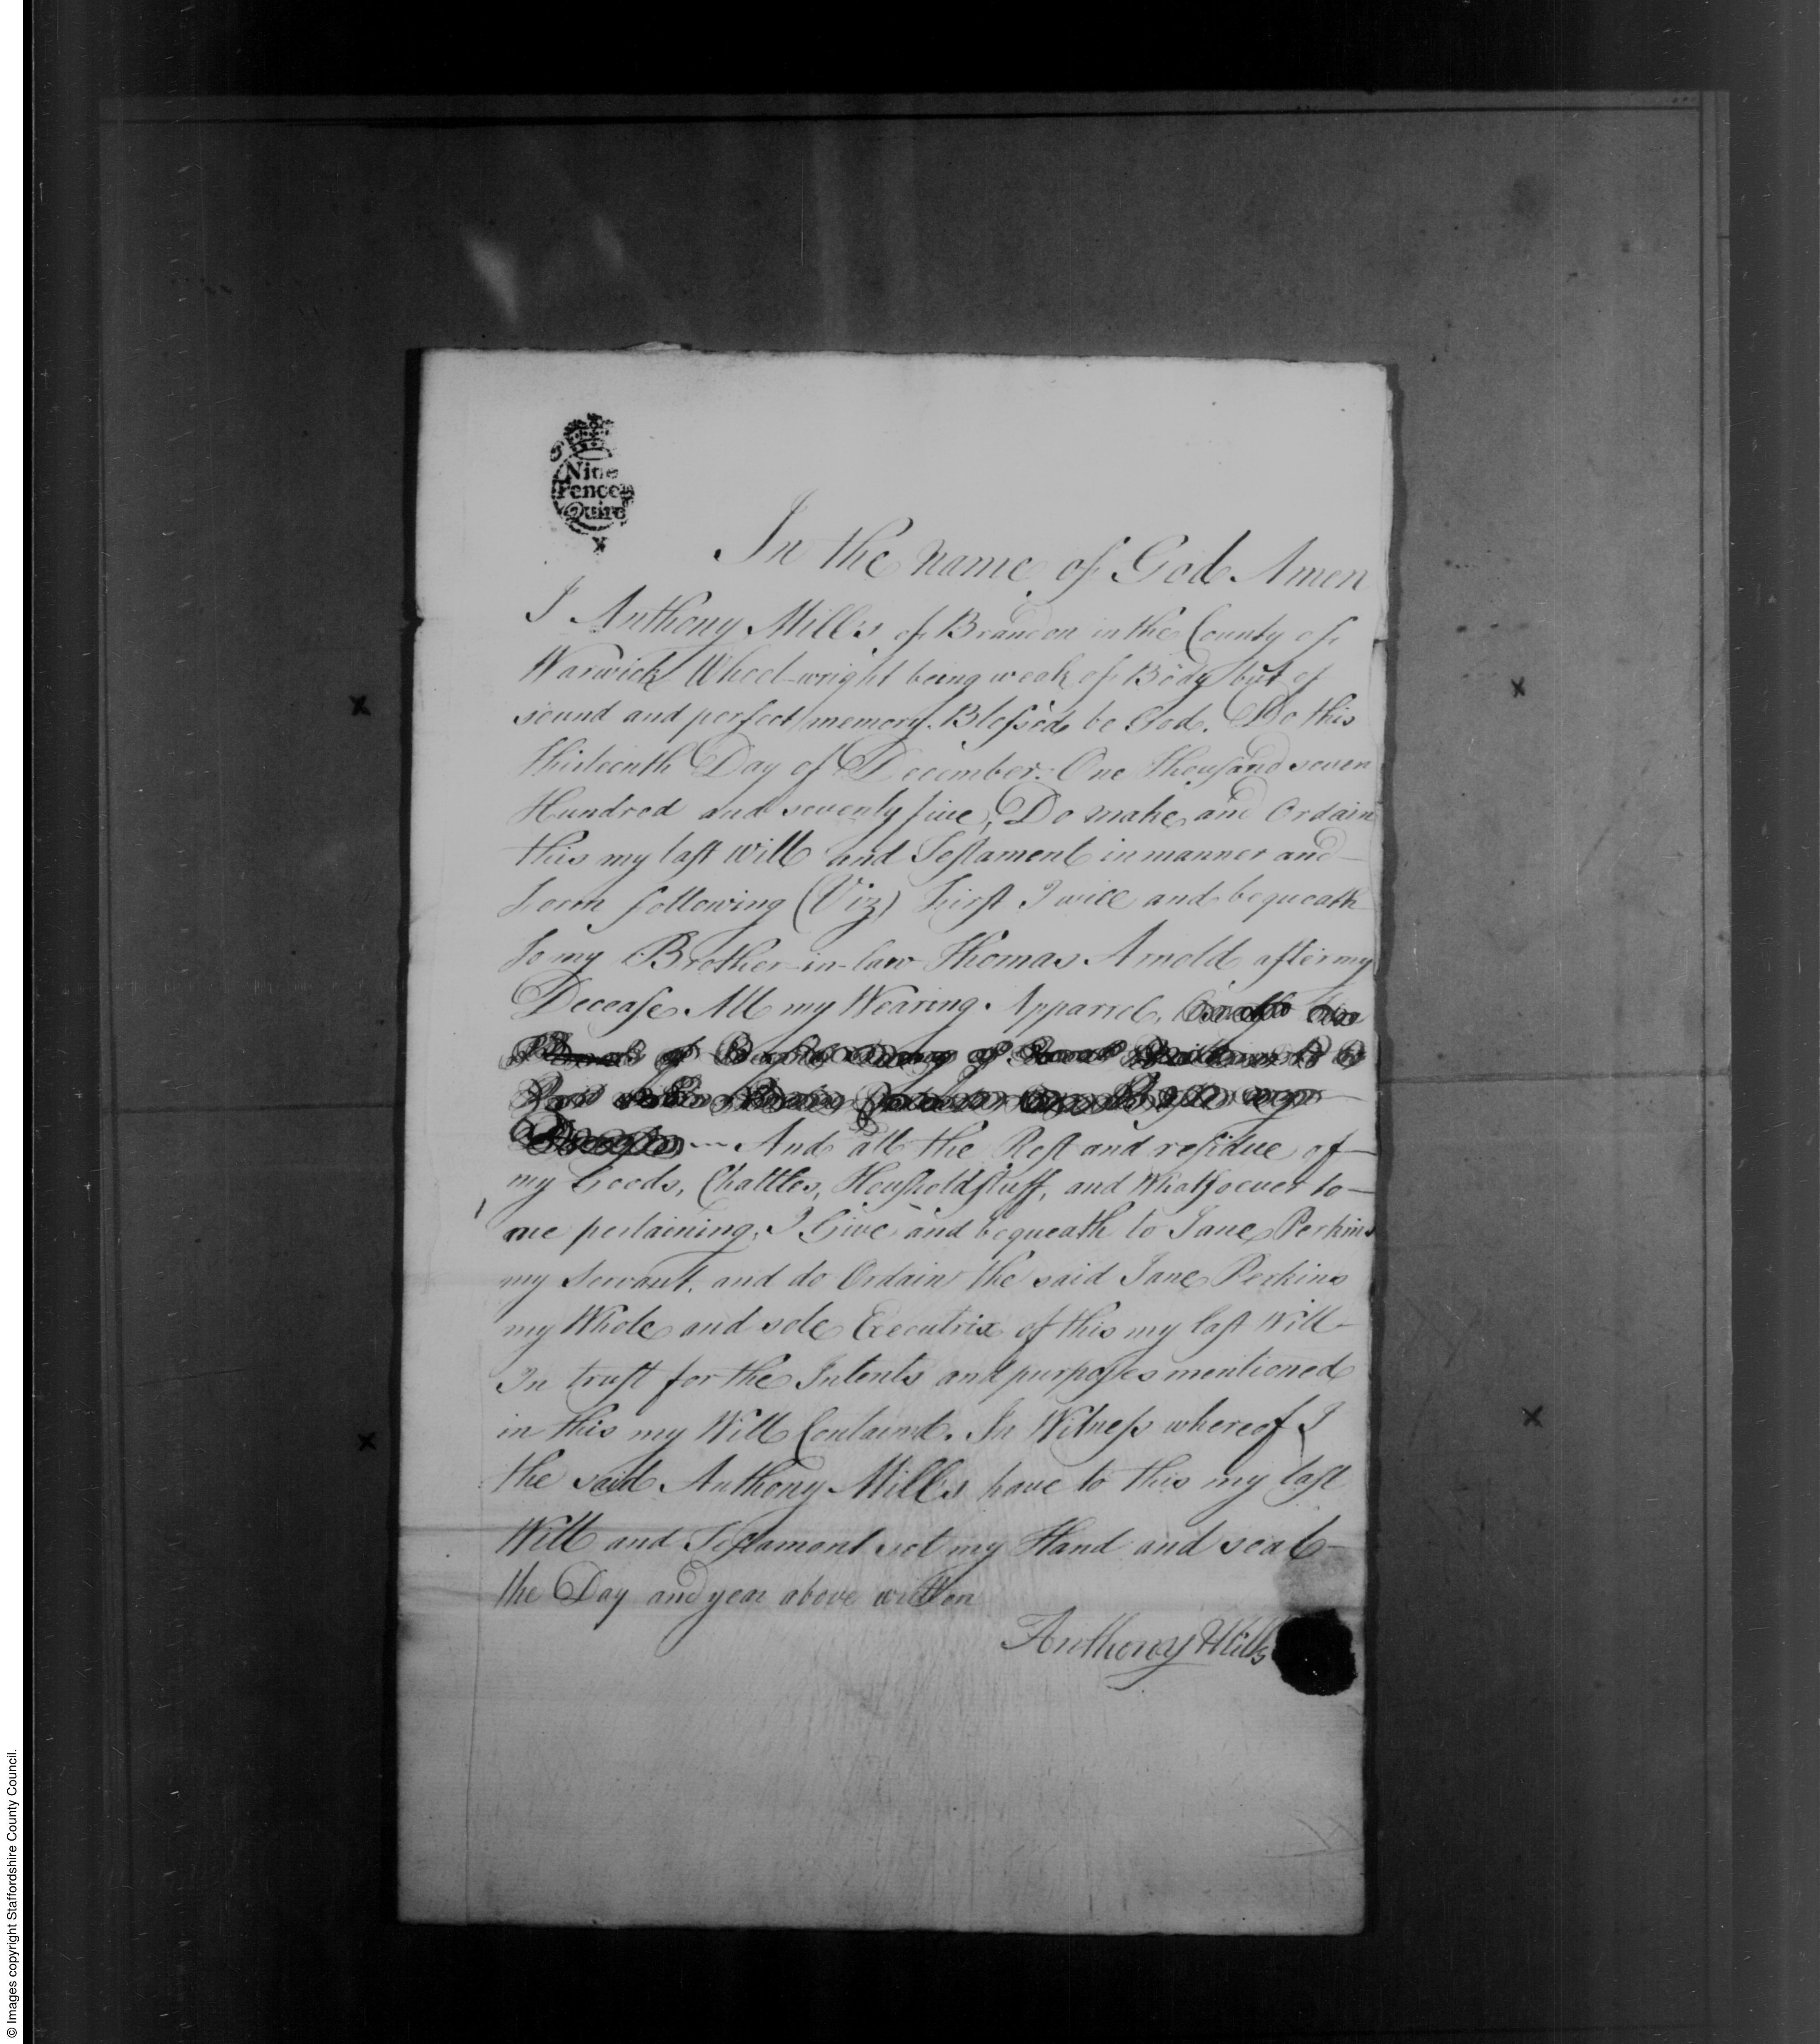 Nine
Pence
Quire
In the Name of God Amen
I Anthony Mills of Brandon in the County of
Warwick Wheel-wright being weak of Body but of
sound and perfect memory. Blessed be God. Do this
thirteenth Day of December: One Thousand seven
Hundred and seventy five, Do make and Ordain
this my last Will and Testament in manner and
form following (Viz) First I will and bequeath
to my Brother-in-law Thomas Arnold after my
Decease All my Wearing Apparrel,
And all the Rest and residue of
my Goods, Chattles, Housholdstuff, and Whatsoever to
me pertaining, I Give and bequeath to Jane Perkins
my Servant, and do Ordain the said Jane Perkins
my Whole and sole Executrix of this my last Will
In trust for the Intents and purposes mentioned
in this my Will Containd. In Witness whereof I
the said Anthony Mills have to this my last
Will and Testament set my Hand and seal
the Day and year above written
Anthony Mills
© Images copyright Staffordshire County Council.